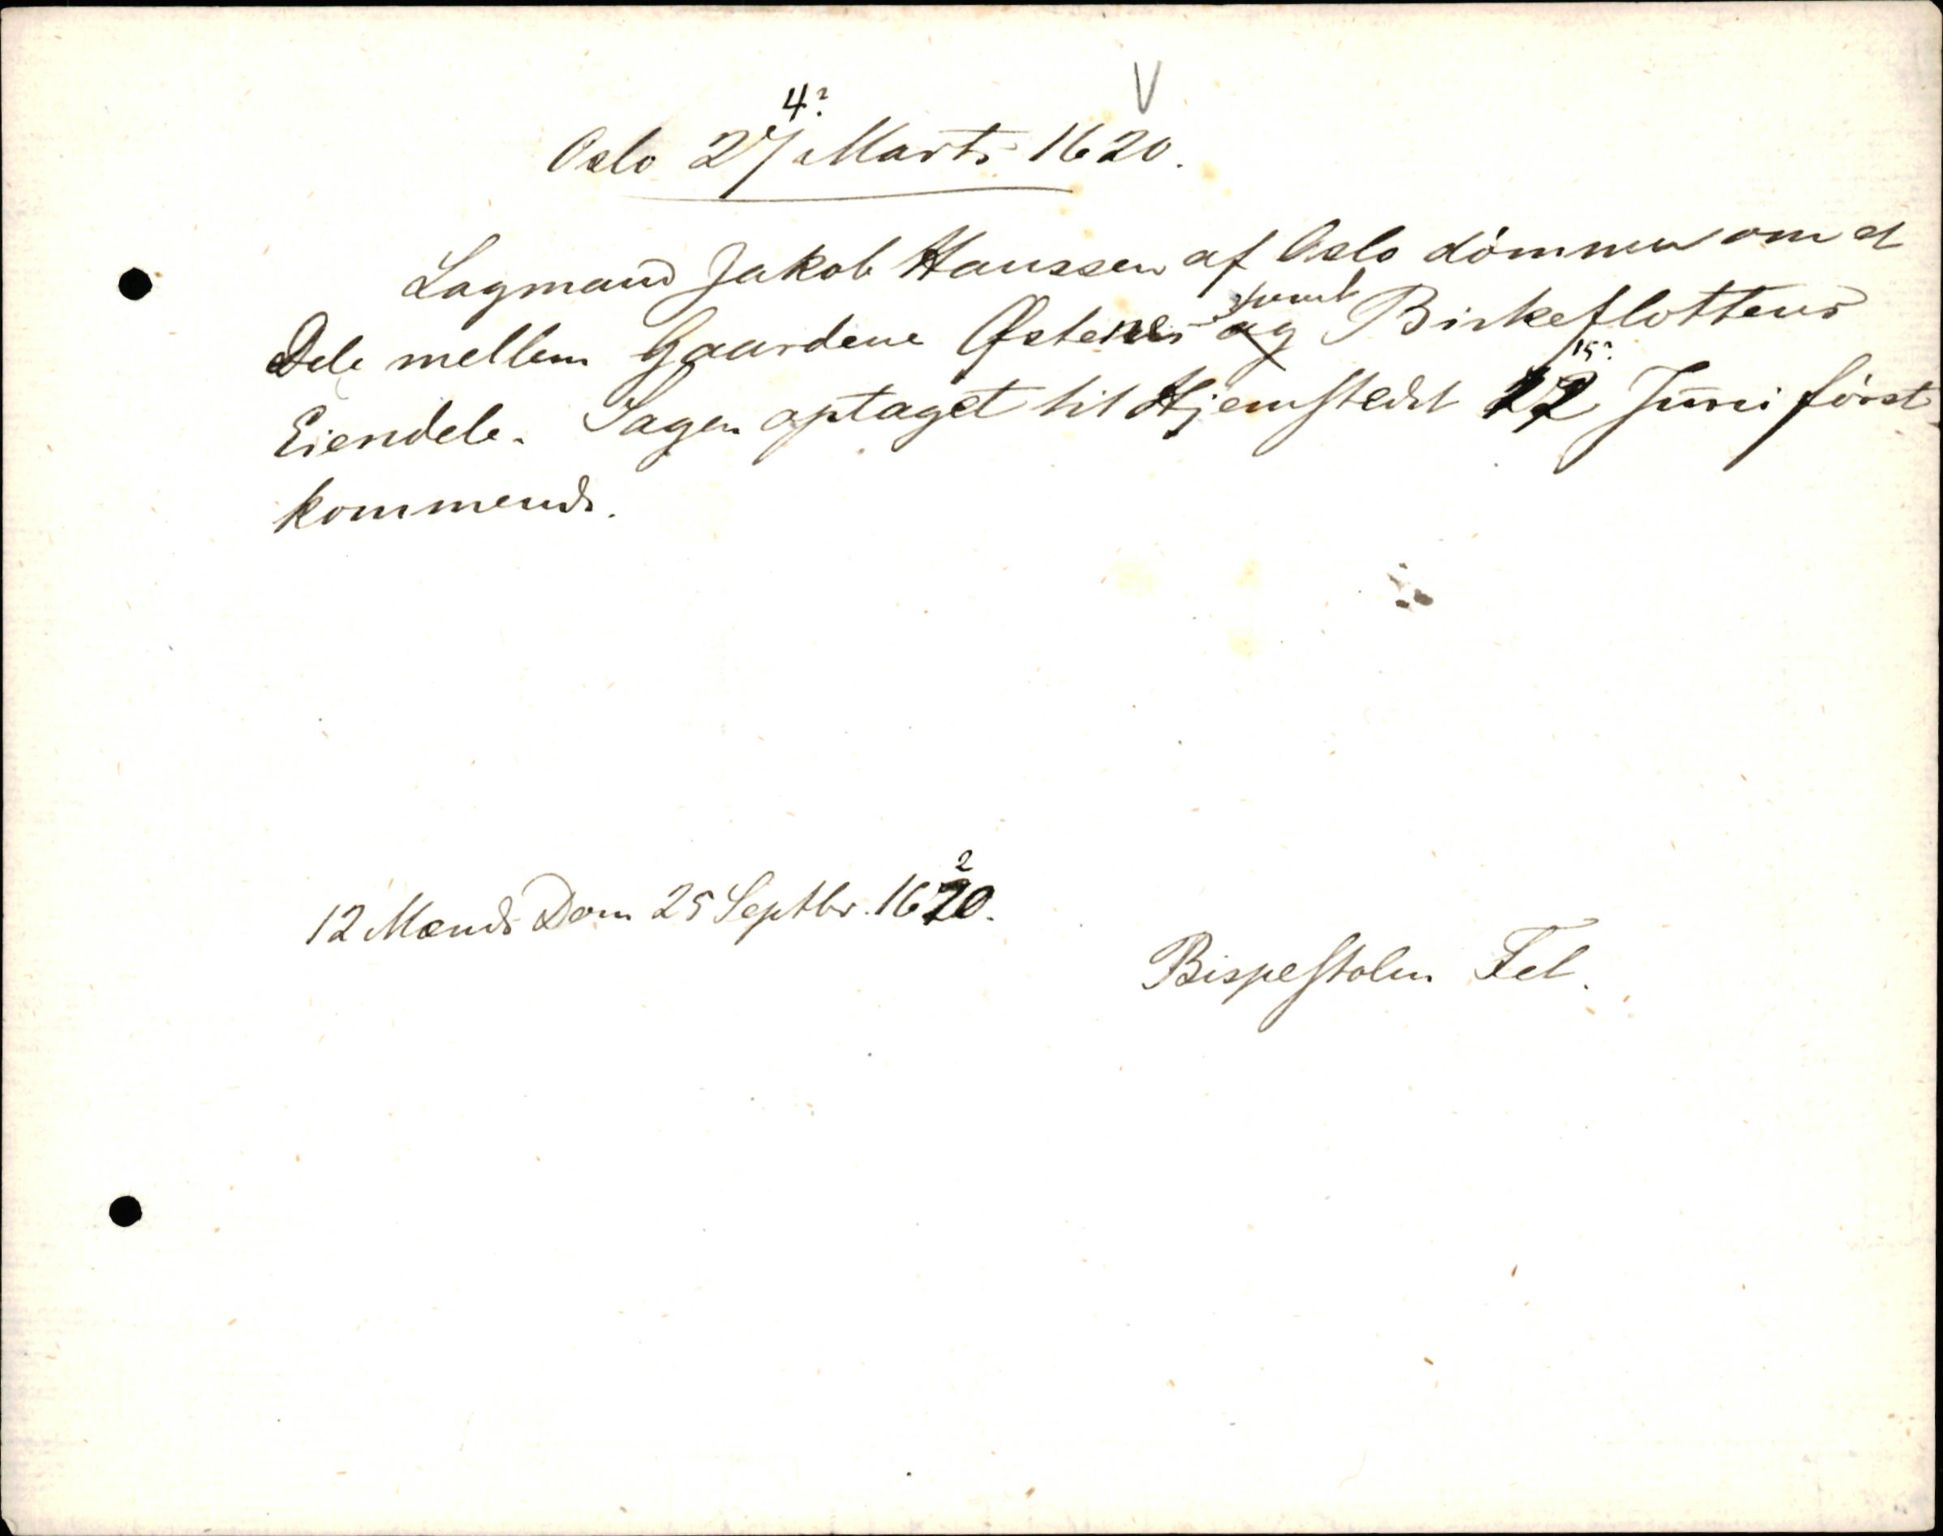 V
4?
Oslo 27 Marts 1620.
Lagmand Jakob Hanssen af Oslo dömmer om et
Dele mellem Gaardene Østenes og samt Birkeflottens
Eiendele. Sagen optaget til Hjemstedet 12 15? Juni först
kommende.
12 Mænds Dom 25 Septbr. 1620. 2
Bispestolen Fel.